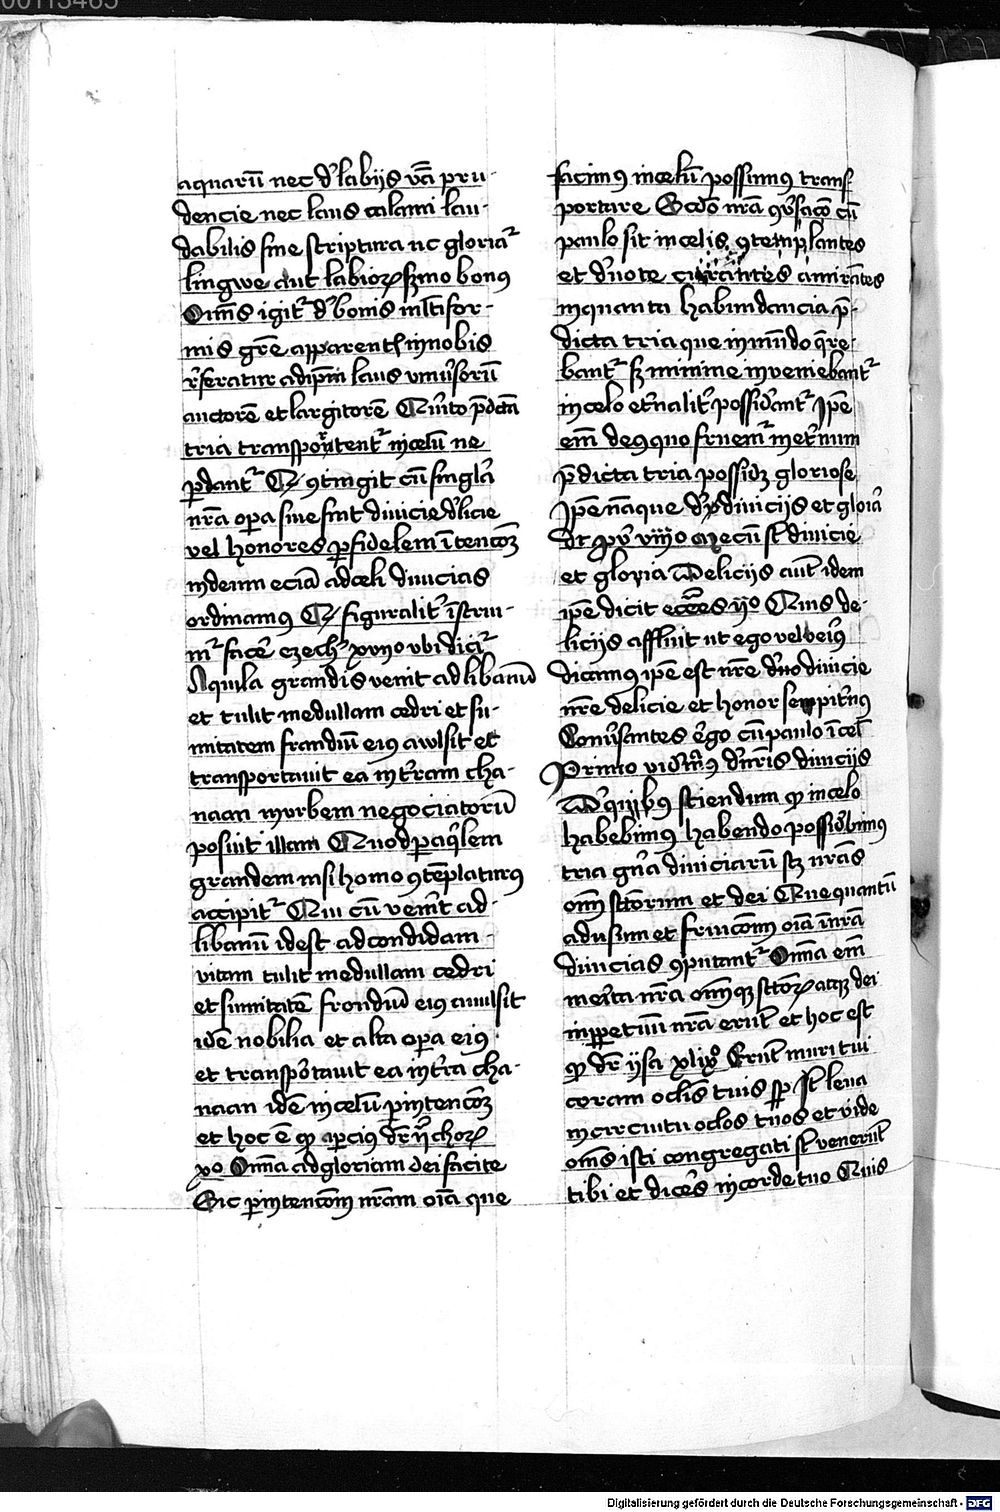 aquarū nec d' labijs vīa pru-
dencie nec laus calami lau-
dabilis sine scriptura nc gloriat᷑
lingwe aut labioꝝ sꝫ in bonꝰ
Om̄s igit᷑ d' bonis ml̄tifor-
mis gr̄e apparent in nobis
r'feratur ad ip̄m laus vniu'sorū
auctorē et largitorē Quīto p̄dc̄ā
tria transportent᷑ in celū ne
ꝑdant᷑ Qꝫ ꝯtingit cū singl'a
nr̄a oꝑa siue sint diuicie d'licie
vel honores ꝑ fidelem ītencōꝫ
in deum eciā ad celi diuicias
ordinamꝰ Qꝫ figuralit᷑ īstrui-
m᷑ facē' ezech' xvijo vbi dicit᷑
Aquila grandis venit ad libanū
et tulit medullam cedri et su-
mitatem frondiū eiꝰ awlsit et
transportauit ea in t'ram cha-
naan in vrbem negociatorū
posuit illam Quod ꝑ aq'lem
grandem nisi homo ꝯtēplatiuꝰ
accipit᷑ Qui cū venīt ad-
libanū id est ad condidam-
vitam tulit medullam cedri
et sumitatē frondiū eiꝰ auulsit
idē nobilia et alta oꝑa eiꝰ
et transp̄ortauit ea in t'ra cha-
naan idē in celū ꝑ intencōꝫ
et hoc ē qꝫ aꝑciꝰ dr̄ ij choꝝ
xo Om̄ia ad gloriam dei facite
Sic ꝑ intencōm nr̄am oīa que
facimꝰ in celū possimꝰ trans-
portare Scd̄o nr̄a ꝯu'sacō cū
paulo sit in celis ꝯtemplantes
et d'uote amirātes
in quanta habundancia p̄-
dicta tria que in mūdo q̄re-
bant᷑ sꝫ minime inveniebant᷑
in celo et'nalit' possidēant᷑ Ip̄e
em̄ deꝰ quo fruem᷑ in et'num
p̄dicta tria possidꝫ gloriose
Ip̄e nāque d' diuicijs et gloīa
dt ꝓu' viijo Mecū st̄ diuicie
et gloria Deliciis aut̄ idem
ip̄e dicit eccēs ijo Quis de-
liciis affluit ut ego vel v'eiꝰ
Dicamꝰ ip̄e est nr̄e d'no diuicie
nr̄e delicie et honor sempit'nꝰ
Conu'santes g̊ cū paulo ī cel'
Primo vid'imꝰ d' nr̄is diuicijs
De quibus sciendum qꝫ in celo
habebimus habendo possid'bimus
tria gn̄a diuiciarū scꝫ nr̄as
om̄ sctōrum et dei Que quantū
ad usum et fruicōm oīa in nr̄ā
diuicias ꝯputant᷑ Om̄ia em̄
merita nr̄a om̄qꝫ sctōꝝ atqꝫ dei
inꝑpetuū nr̄a erūt et hoc est
qꝫ dr̄ ysa xlixo Erūt muri tui
coram oc̄lis tuis sꝑ It̄ leua
in circuitu oc̄los tuos et vide
om̄s isti congregati st̄ venerūt
tibi et dices in corde tuo Quis